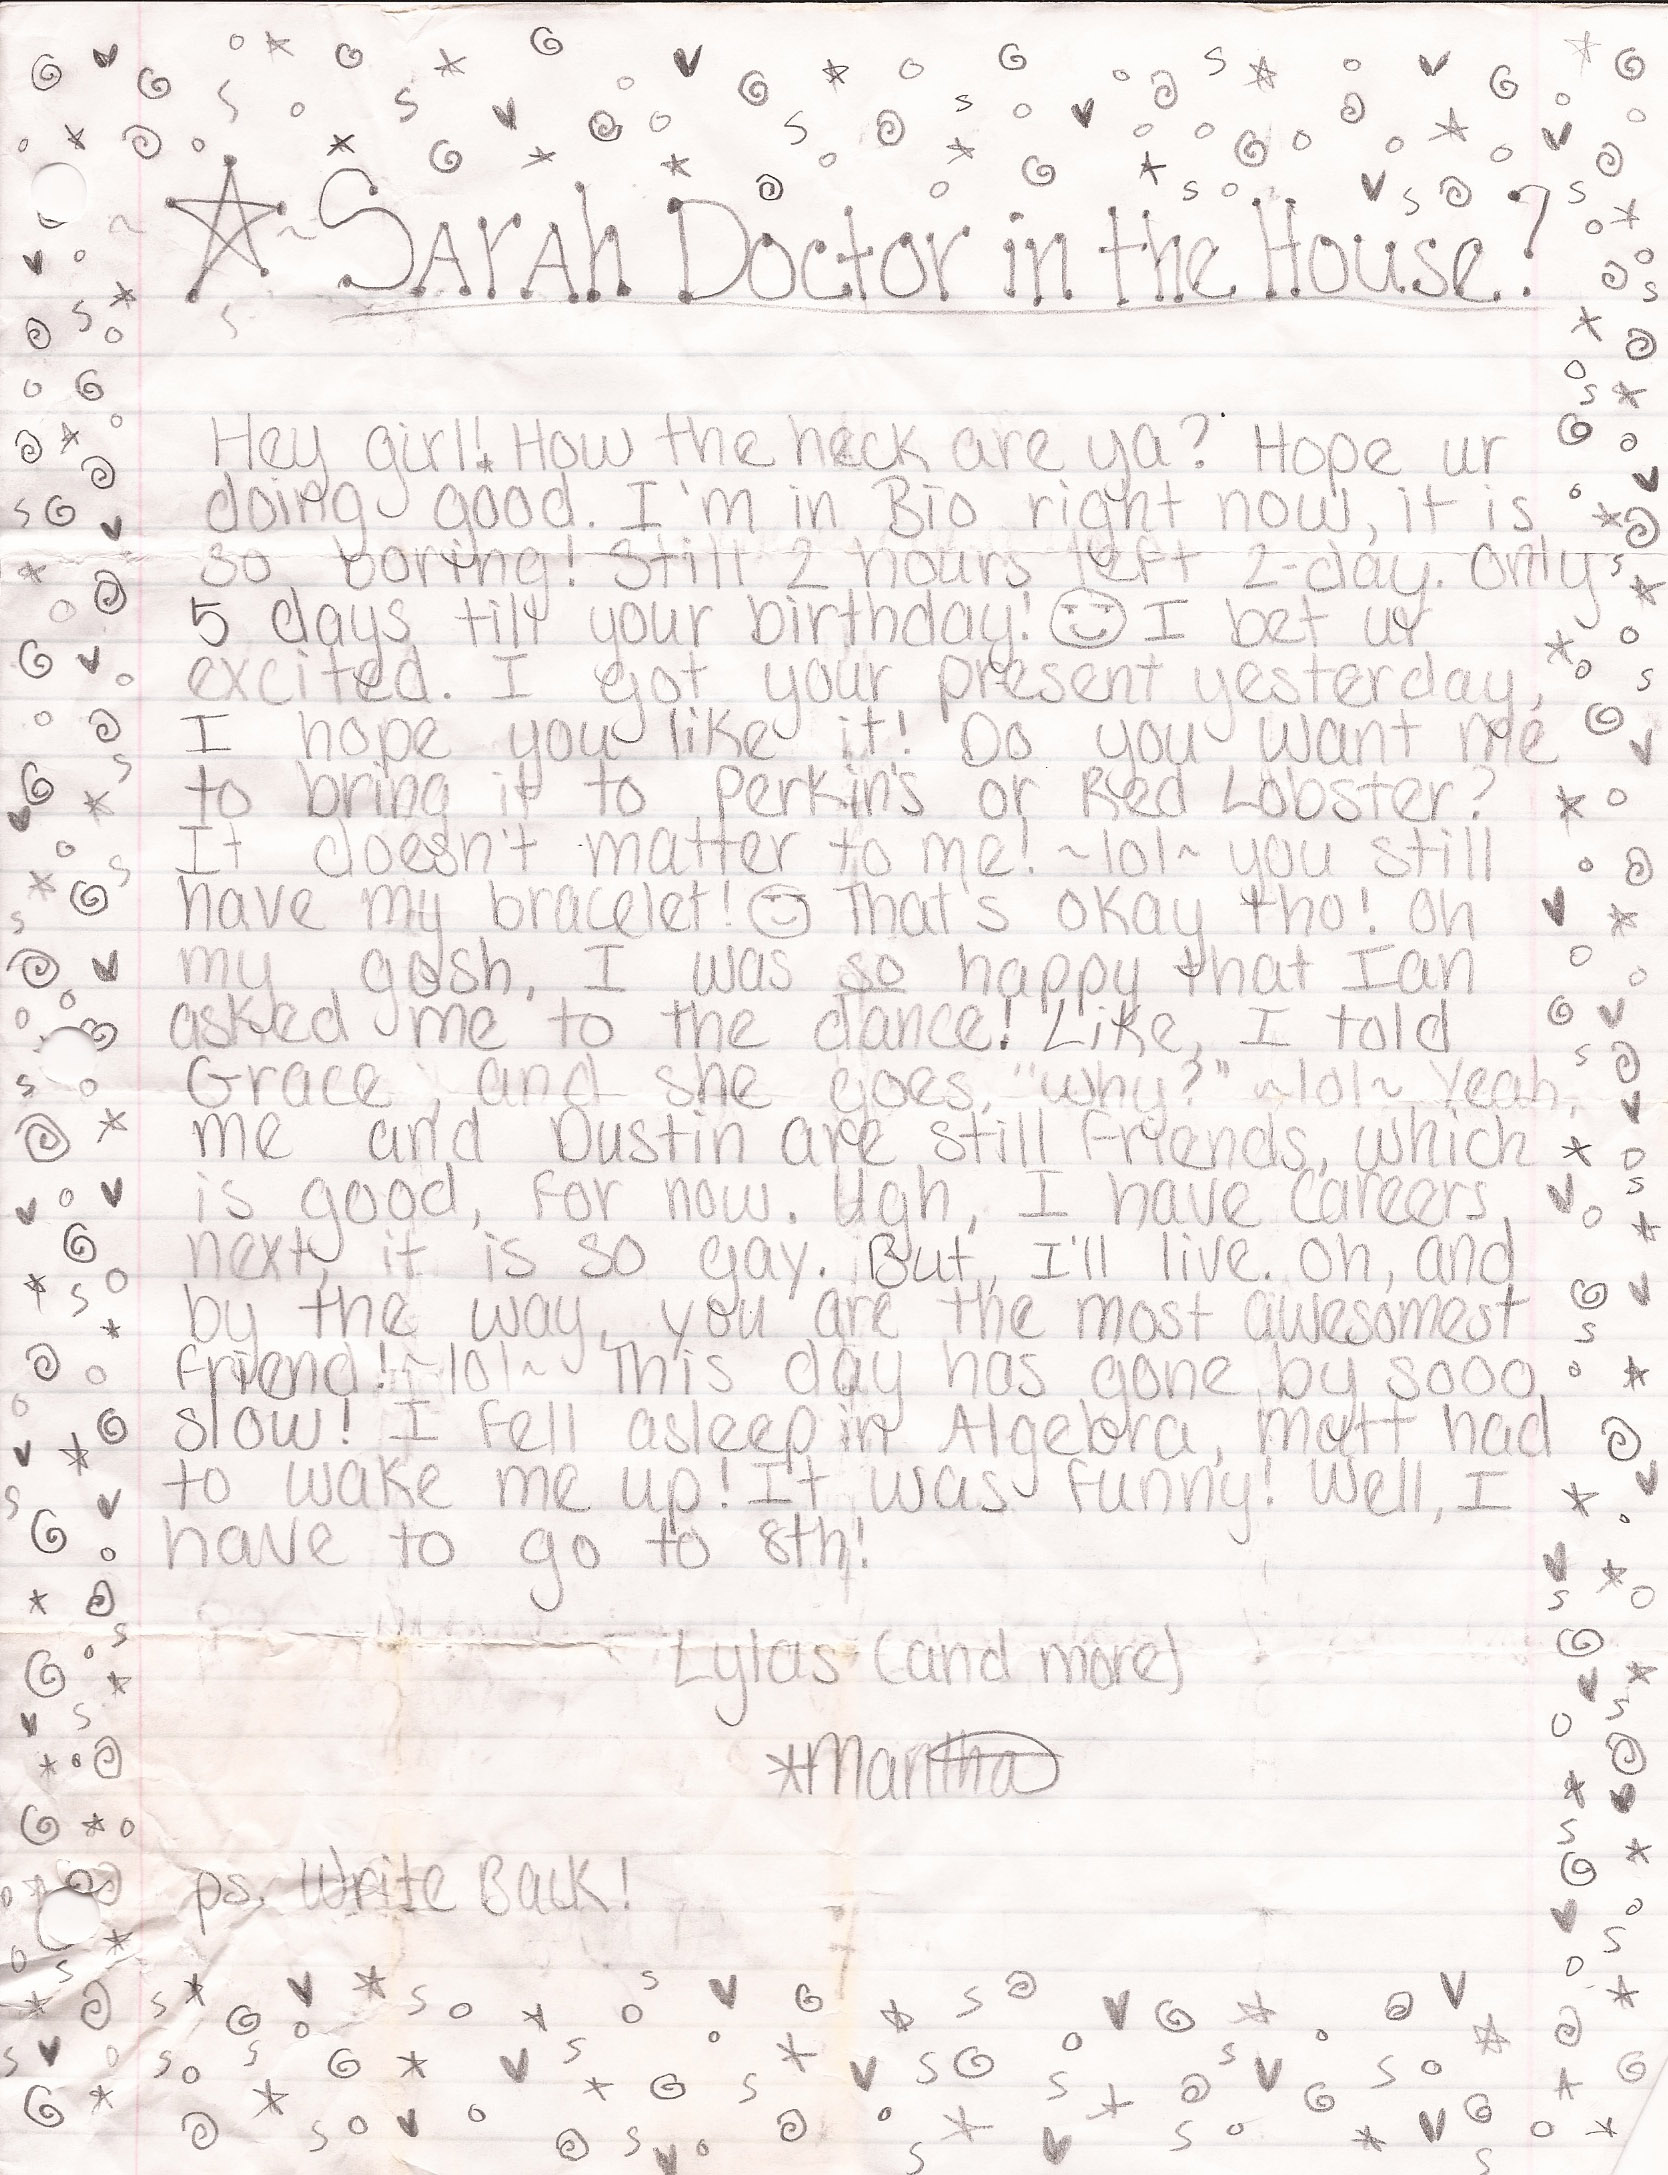 ~☆~Sarah Doctor in the House!
Hey girl! How the heck are ya? Hope ur
doing good. I'm in Bio right now, it is
so boring! Still 2 hours left 2-day. Only
5 days till your birthday! ☺ I bet ur
excited. I got your present yesterday,
I hope you like it! Do you want me
to bring it to Perkin's or Red Lobster?
It doesn't matter to me! ~lol~ you still
have my bracelet! ☺ That's okay tho! Oh
my gosh, I was so happy that Ian
asked me to the dance! Like, I told
Grace, and she goes, "why?" ~lol~ Yeah,
me and Dustin are still friends, which
is good, for now. Ugh, I have Careers
next, it is so gay. But, I'll live. Oh, and
by the way, you are the most awesomest
friend! ~lol~ This day has gone by sooo
slow! I fell asleep in Algebra, Matt had
to wake me up! It was funny! Well, I
have to go to 8th!
Lylas (and more)
*Mantha
ps. Write Back!